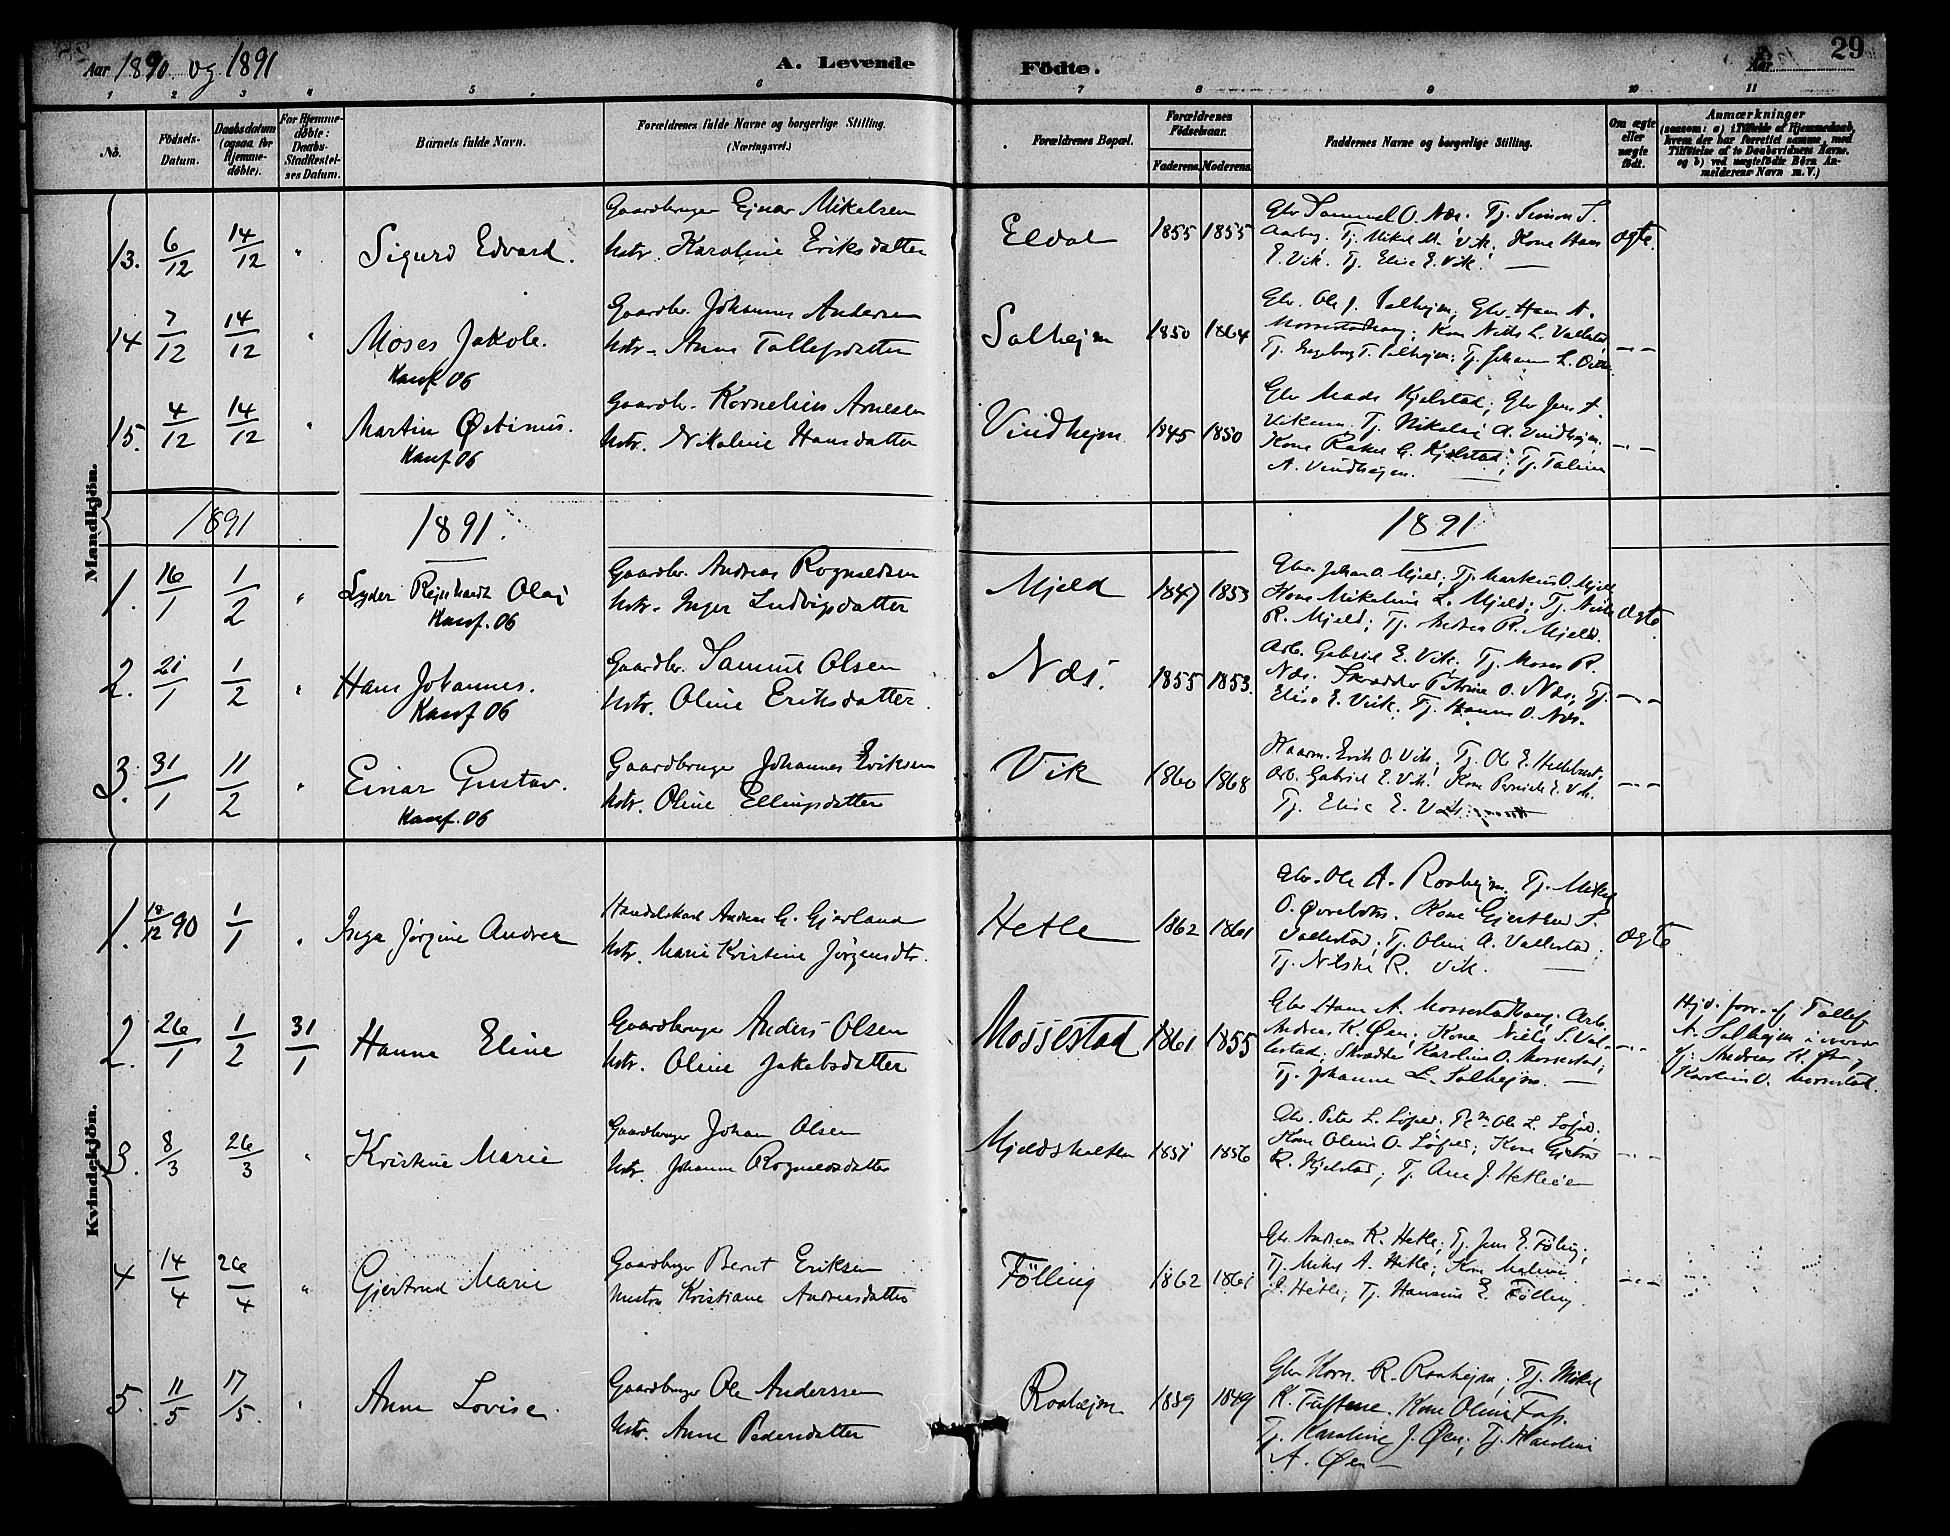 Aar 1890 og 1891 A. Levende Födte. Aar 29
1 2 3 4 5 6 7 8 9 10 11
No. Födsels-Datum. Daabsdatum (ogsaa for Hjemme-döbte). For Hjemme-döbte: Daabs-Stadfæstel-ses Datum. Barnets fulde Navn. Forældrenes fulde Navne og borgerlige Stilling. (Næringsvei.) Forældrenes Bopæl. Forældrenes Födselsaar. Faderens. Moderens. Faddernes Navne og borgerlige Stilling. Om ægte eller uægte födt. Anmærkninger (saasom: a) i Tilfælde af Hjemmedaab, hvem der har forrettet samme, med Tilföielse af to Daabsvidners Navne. og b) ved uægtefödte Börn An-melderens Navn m. V.)
Mandkjön.
13. 6/12 14/12 " Sigurd Edvard.
Gaardbruger Ejnar Mikelsen
hstr. Karoline Eriksdatter
Eldal 1855 1855
Gbr Samuel O. Næs. Tj. Simon S.
Aarberg. Tj. Mikel M. Vik. Kone Hans
E. Vik. Tj. Elise E. Vik.
ægte.
14 7/12 14/12 " Moses Jakob.
Konf. 06
Gaardbr. Johannes Andersen
hstr. Anna Tollefsdatter
Solhejm 1850 1864
Gbr. Ole J. Solhejm, Gbr. Hans A.
Mossestadhaug; Kone Nils L. Vallestad,
Tj. Ingeborg T. Solhejm; Tj. Johan L.
15. 4/12 14/12 " Martin Østinus.
Konf 06
Gaardbr. Kornelius Arnesen
hstr. Nikoline Hansdatter
Vindhejm 1845 1850
Gbr Mads Kjelstad; Gbr Jens A.
Tj. Nikolai A. Vindhejm.
Kone Rakel G. Kjelstad; Tj. Taline
A. Vindhejm.
1891 1891. 1891
1. 16/1 1/2 " Lyder Rejnhardt Olai
Konf. 06
Gaardbr. Andreas Rognaldsen
hstr. Inger Ludvigsdatter
Mjeld 1847 1853
Gbr. Johan O. Mjeld; Tj. Markus O. Mjeld
Kone Mikeline L. Mjeld; Tj. Nils
R. Mjeld; Tj. Andrea R. Mjeld.
ægte.
2. 21/1 1/2 " Hans Johannes.
Konf 06
Gaardbr. Samuel Olsen
hstr. Oline Eriksdatter.
Næs. 1855 1853.
Arb. Gabriel E. Vik. Tj. Moses R.
Næs. Skrædder Petrine O. Næs; Tj.
Elise E. Vik. Tj. Hanna O. Næs.
3. 31/1 11/2 " Einar Gustav.
Konf. 06
Gaardbruger Johannes Eriksen
hstr. Oline Ellingsdatter
Vik 1860 1868
Kaarm. Erik O. Vik; Tj. Ole E.
Arb. Gabriel E. Vik. Kone E. Vik.
Tj. Elise E. Vik.
Kvindekjön.
1. 18/12 90 1/1 " Inga Jørgine Andrea
Handelskarl Andreas G. Gjerland
hstr. Marie Kristine Jørgensdtr.
Hetle 1862 1861
Gbr. Ole A. Roahejm. Tj. Mikel
O. Kone Gjertrud S.
Vallestad; Tj. Oline A. Vallestad;
Tj. Nilske R. Vik.
ægte
2. 26/1 1/2 31/1 Hanna Eline
Gaardbruger Anders Olsen
hstr. Oline Jakobsdatter
Mossestad 1861 1855
Gbr Hans A. Mossestadhaug; Arb.
Andreas K. Øen; Kone Niels S. Val-
lestad; Skrædder Karoline O. Mossestad;
Tj. Johanne L. Solhejm.
Hjd. forr. af Tollef
A. Solhejm i overv
af Andreas K. Øen og
Karoline O. Mossestad.
3. 8/3 26/3 " Kristine Marie
Gaardbruger Johan Olsen
hstr. Johanne Rognaldsdatter
Mjeldshalsen 1851 1856
Gbr. Peter L. Løfald; Ole L. Løfald.
Kone Oline O. Løfald; Kone Gjertrud
R. Kjelstad; Tj. Ane J. Hetleøen
4 14/4 26/4 " Gjertrud Marie
Gaardbruger Bernt Eriksen
hustru Kristiane Andreasdatter
Fölling 1862 1861
Gbr. Andreas K. Hetle; Tj. Jens E. Fölling;
Tj. Mikel A. Hetle; Kone Malene
J. Hetle; Tj. Hansine E. Fölling.
5. 11/5 17/5. " Anna Lovise.
Gaardbruger Ole Anderssen
hstr. Anne Pedersdatter
Roahejm 1859 1849
Gbr Korn. R. Roahejm; Tj. Mikel
K. Tuftene. Kone Oline
Tj. Karoline J. Øen; Tj. Karoline
A. Øen